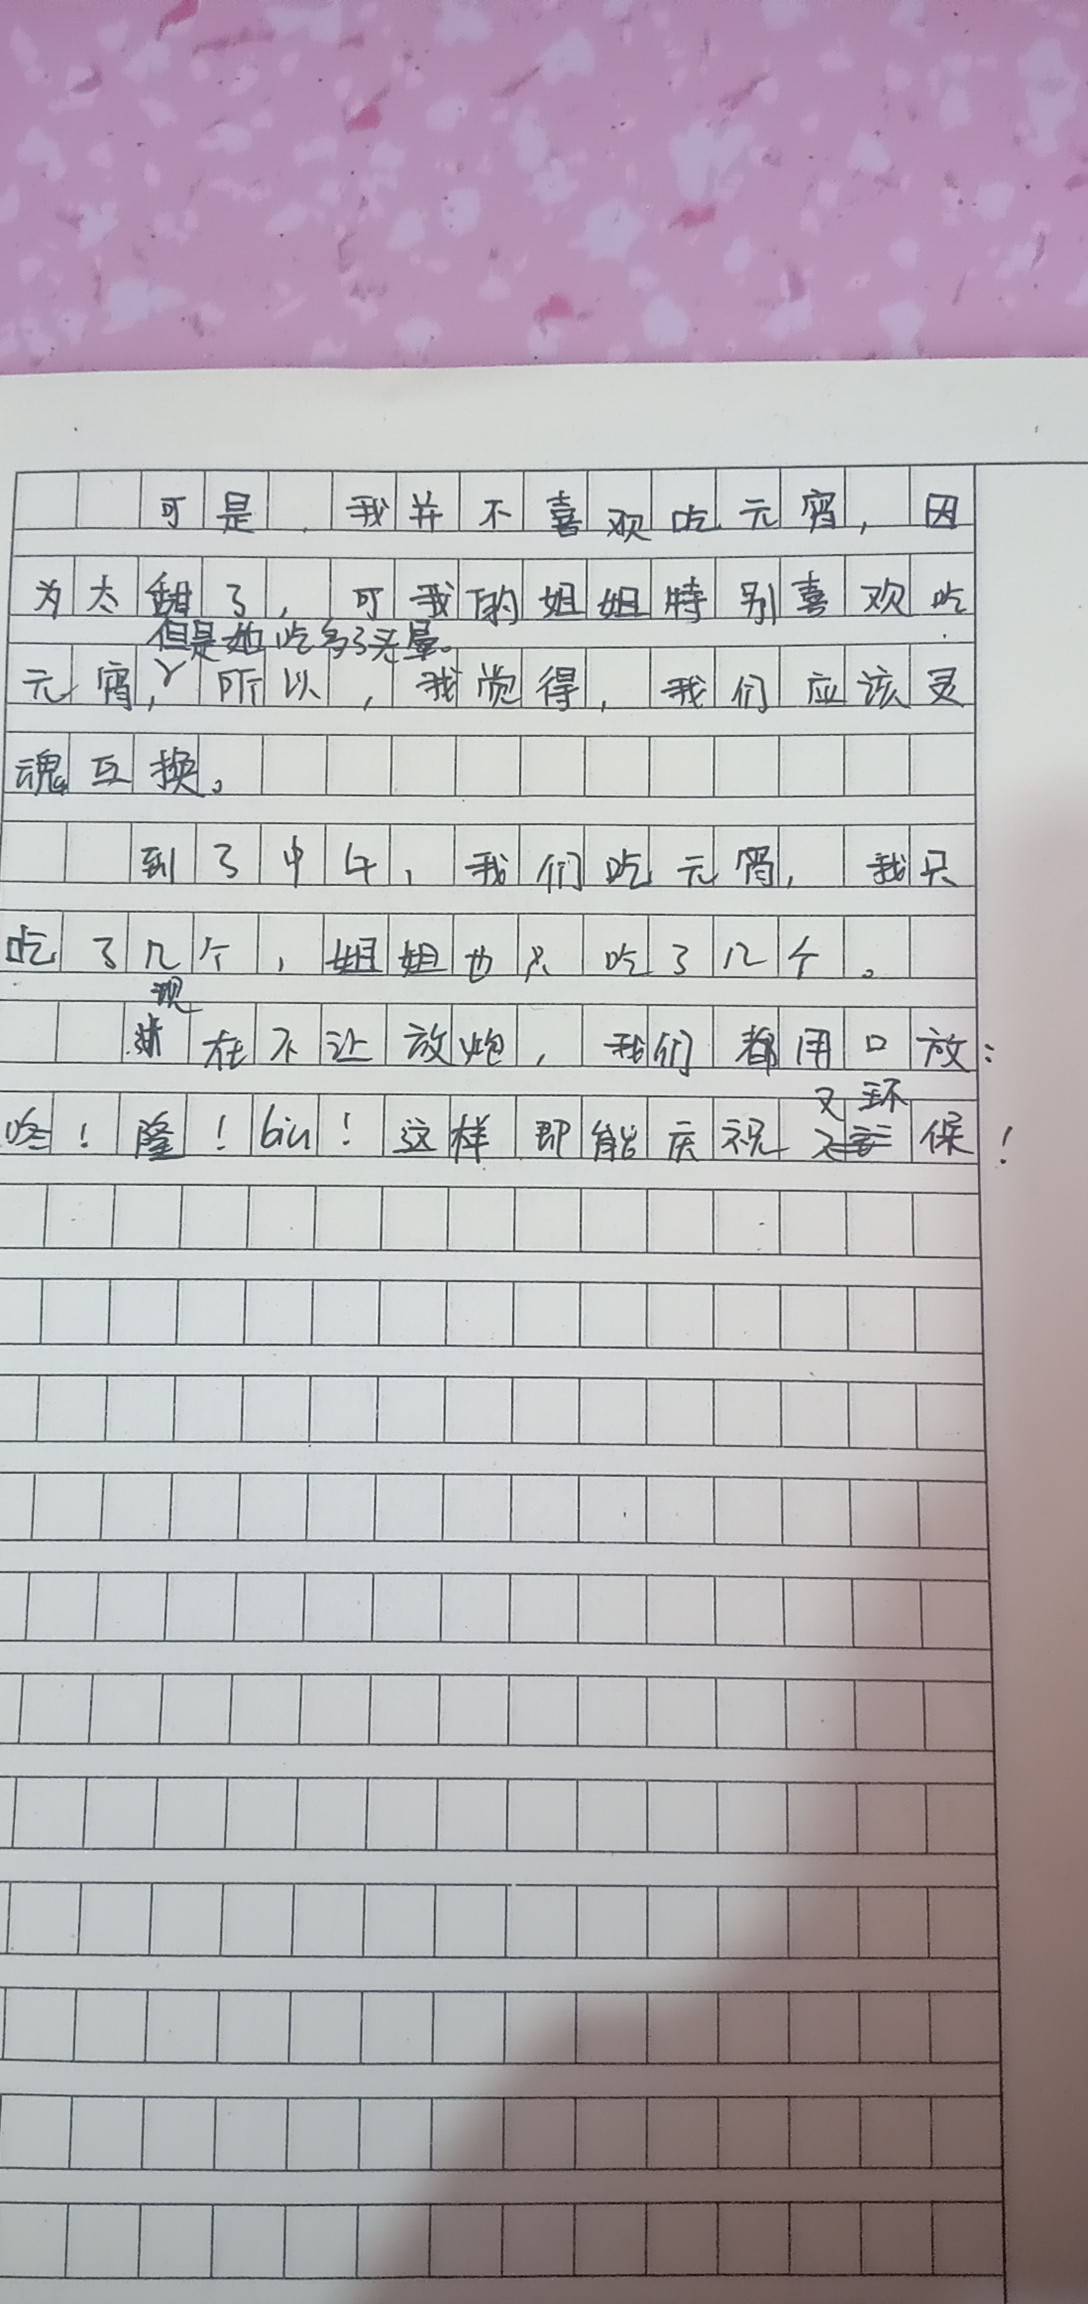 可是,我并不喜欢吃元宵,因
为太甜了,可我的姐姐特别喜欢吃
但是她吃多了头晕。
元宵,所以,我觉得,我们应该灵
魂互换。
到了中午,我们吃元宵,我只
吃了几个,姐姐也只吃了几个。
现
在不让放炮,我们都用口放:
又环
咚!隆!biu!这样即能庆祝保!